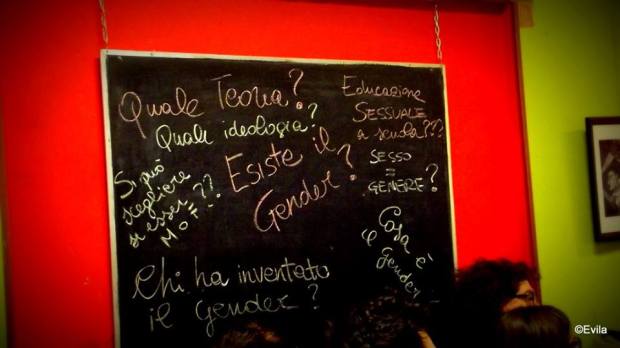 Quale Teoria?
Quale ideologia?
Educazione
SESSUALE
a scuola???
Esiste il
Gender?
SESSO
=
GENERE?
Si può
scegliere
di esser
M o F??
Cosa è
il gender
Chi ha inventato
il Gender?
©Evila